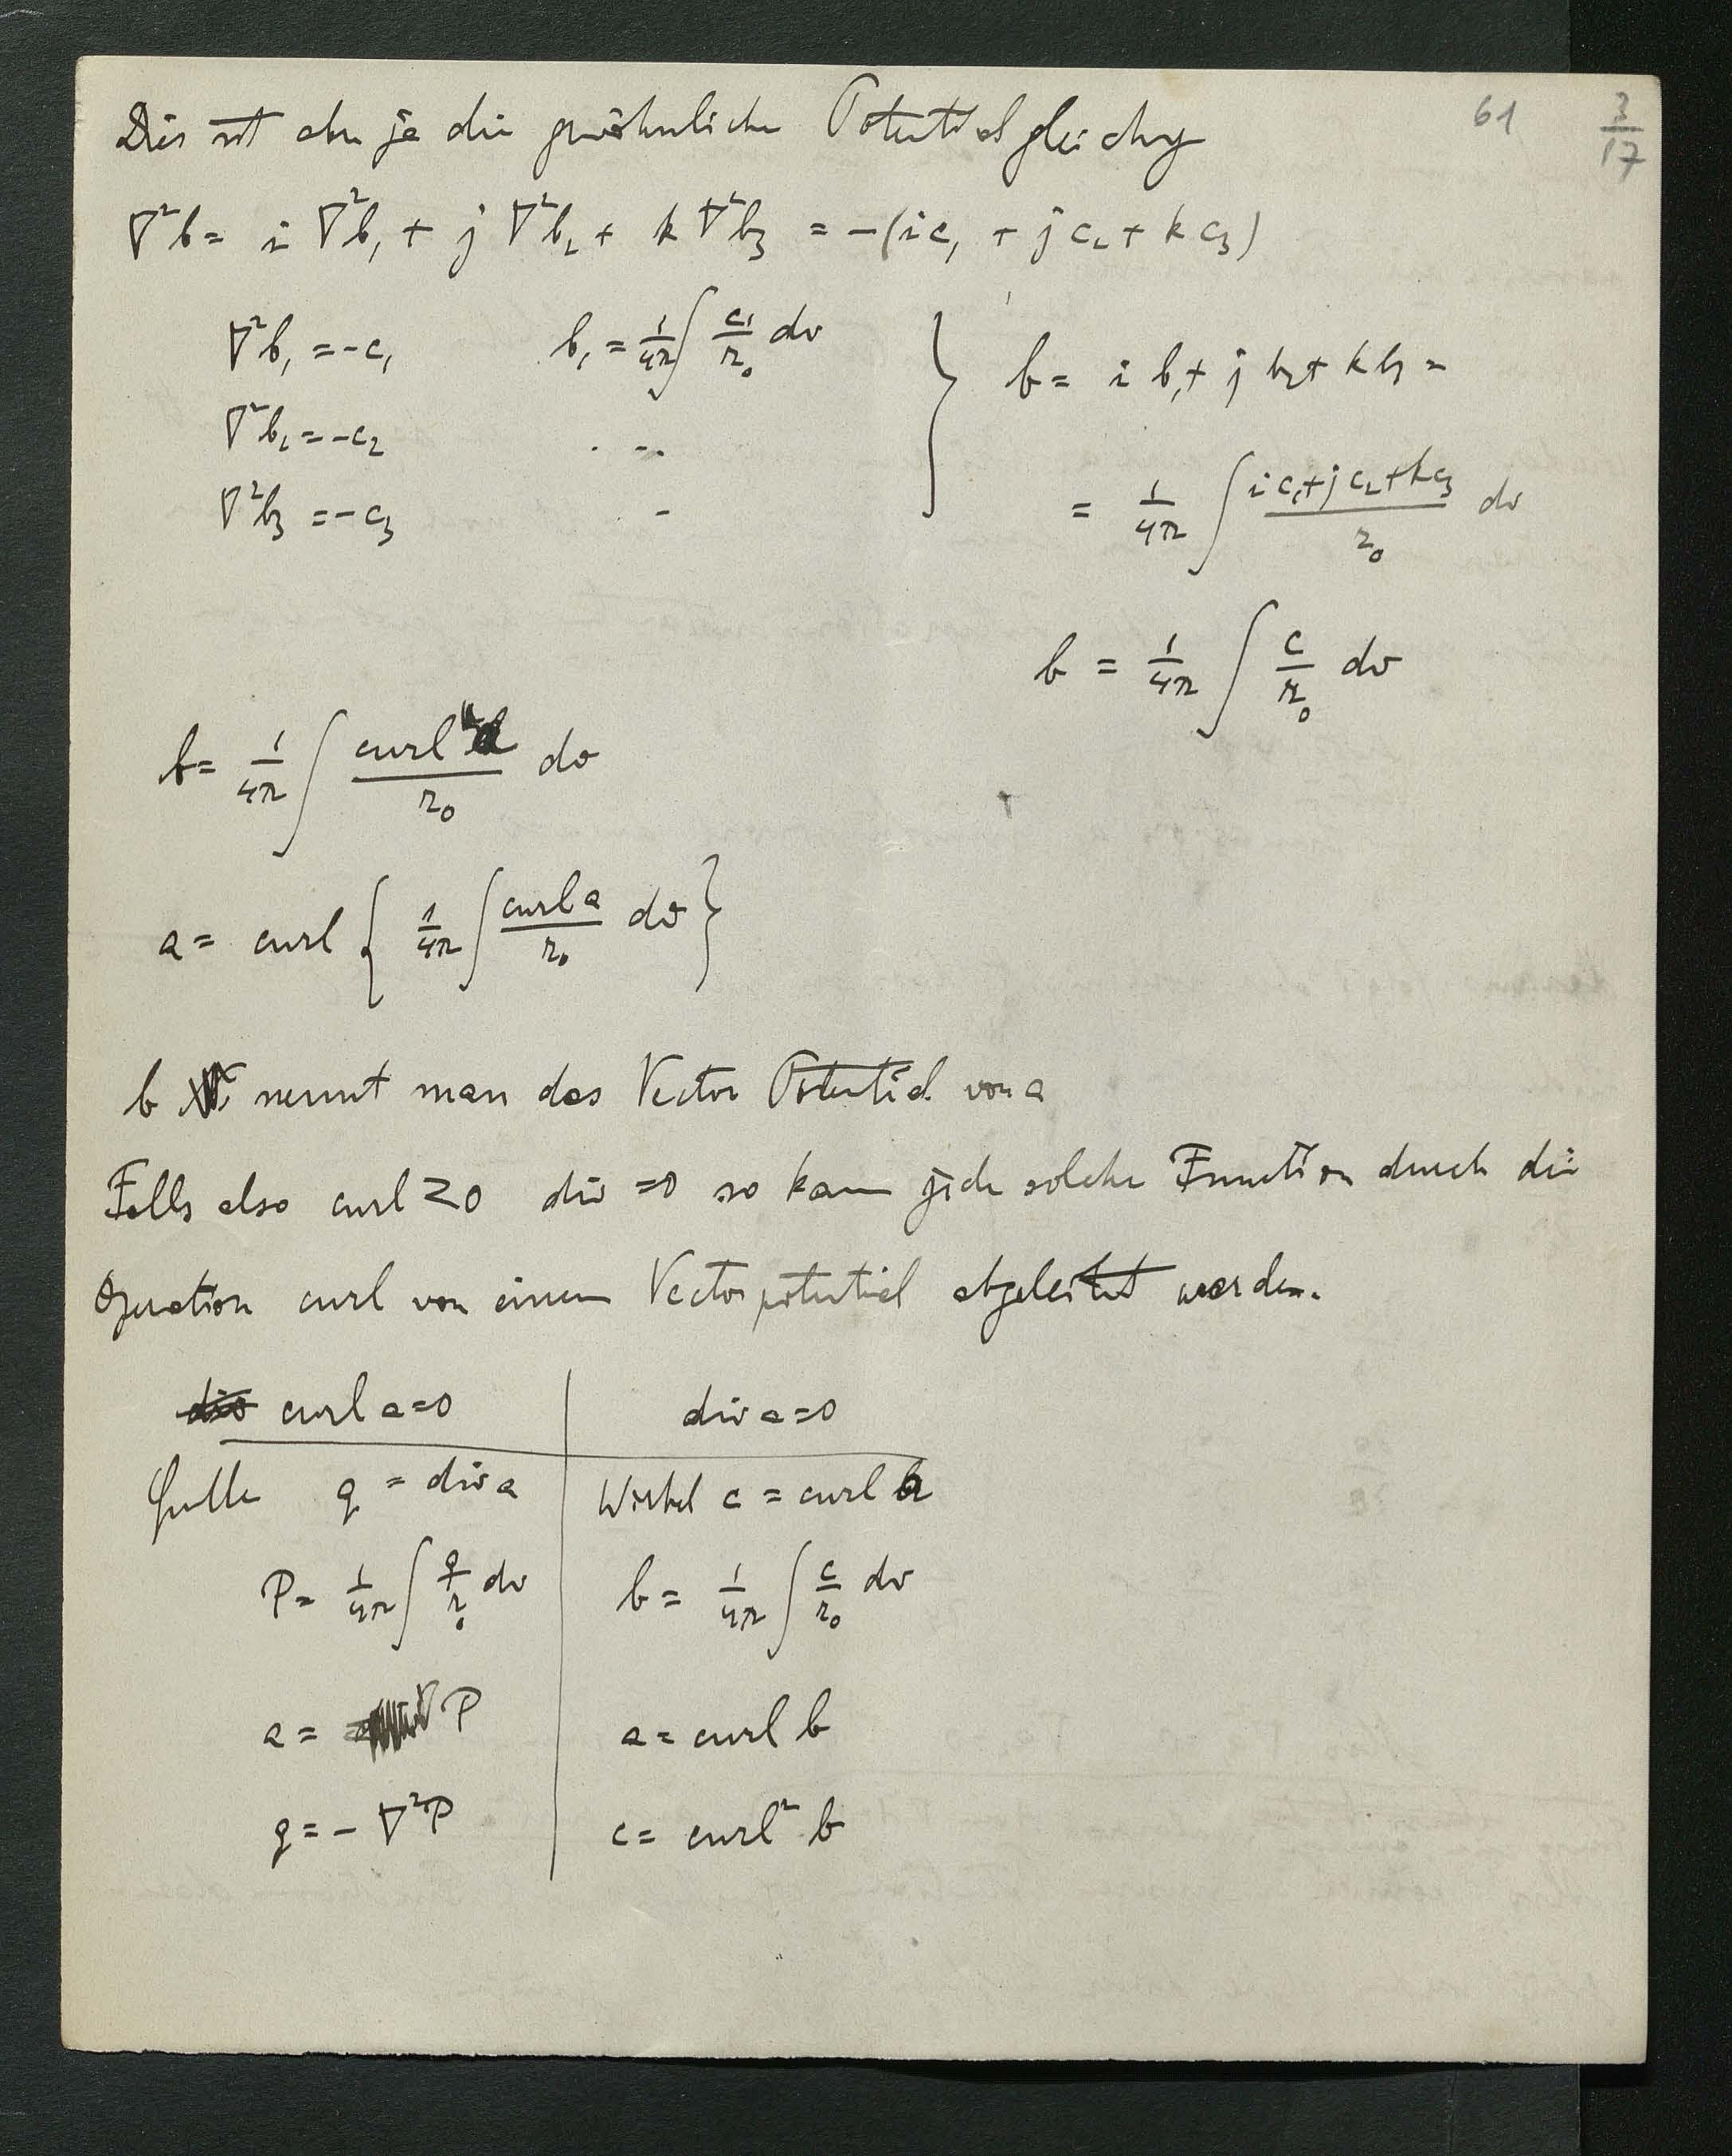 61 3/17
Dies ist aber ja die gewöhnliche Potentialgleichg
∇²b = i ∇²b₁ + j ∇²b₂ + k ∇²b₃ = -(i c₁ + j c₂ + k c₃)
∇²b₁ = -c₁ b₁ = 1/4π ∫ c₁/r₀ dv } b = i b₁ + j b₂ + k b₃ =
∇²b₂ = -c₂ . - -.
∇²b₃ = -c₃ - = 1/4π ∫ (i c₁ + j c₂ + k c₃)/r₀ dv
b = 1/4π ∫ c/r₀ dv
b = 1/4π ∫ curl a/r₀ dv
a = curl { 1/4π ∫ curl a/r₀ dv }
b nennt man das Vector Potential von a
Falls also curl ≷ 0 div = 0 so kann jede solche Function durch die
Operation curl von einem Vectorpotential abgeleitet werden.
div curl a = 0 | div a = 0
Quelle q = div a | Wirbel c = curl a
P = 1/4π ∫ q/r₀ dv | b = 1/4π ∫ c/r₀ dv
a = ∇P | a = curl b
q = - ∇²P | c = curl² b